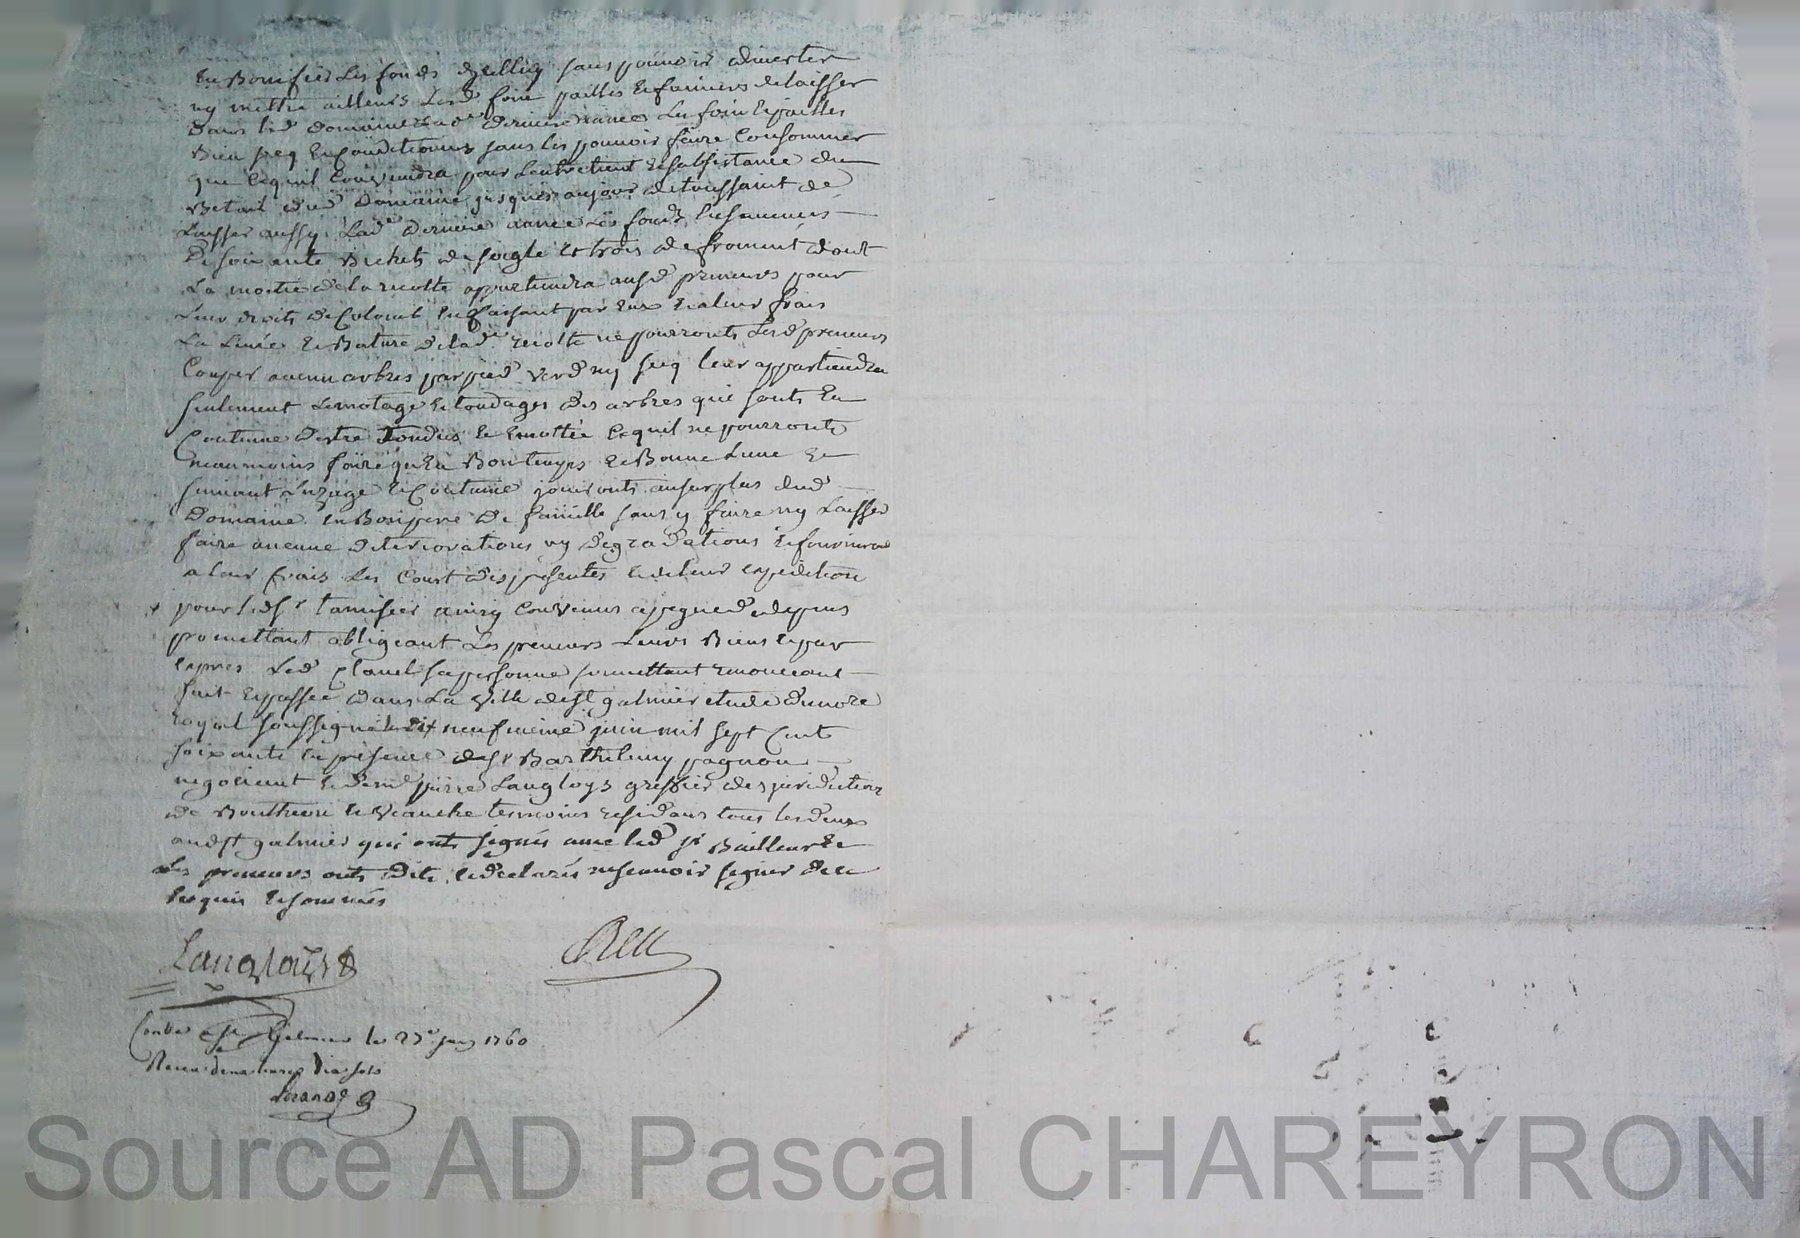 en Bonifier les fonds dicelluy sans pouvoir divertir
ny mettre ailleurs lesd foin pailles et fumiers de laisser
dans led domaine lad.e derniere année les foin et pailles
Bien seq et conditionnés sans les pouvoir faire Consommer
que ce quil conviendra pour lentretient et subsistance du
Betail dud Domaine jusques au jour de toussaint de
Laisser aussy lad.e derniere année les fonds ensemencés
de soixante Bichets de seigle et trois de froment dont
La moitié de la recolte appartiendra ausd preneurs pour
Leur droits de Colont en faisant par eux et a leur frais
La Levée et Bature de lad.e recolte ne pourronts Lesd preneurs
Couper aucun arbres par pied verd ny seq leur appartiendra
seulement Lemotage et tondages des arbres qui sonts en
Coutume destre Tondus et emottée ce quil ne pourronts
neanmoins faire qu'en Bon temps et Bonne Lune et
suivant Luzage et Coutume jouironts au surplus dud
Domaine en Bon pere de famille sans y faire ny Laisser
faire aucune deteriorations ny degradations et fourniront
a leur frais les Cout des presentes et de leur expedition
pour led sr tamisier ainsy convenus
promettant obligeant Les preneurs Leurs Biens et par
expres Led Planel sa personne soumettant renonceant
fait et passée dans La Ville de st galmier etude du no.re
royal soussigné le dix neufvieme juin mil sept Cents
soixante en présence de sr Barthelemy pagnon
negotient et de me pierre Langloys greffier des juridiction
de Bouthéon et Veauche temoins residans tous les deux
aud st galmier qui onts signés avec led sr Bailleur et
Les preneurs onts dits et declarés ne scavoir signer de ce
Enquis et sommés
Langloys Reu
Contlé a St Galmier le 27e juin 1760
Receu douze livres dix sols
Source AD Pascal CHAREYRON